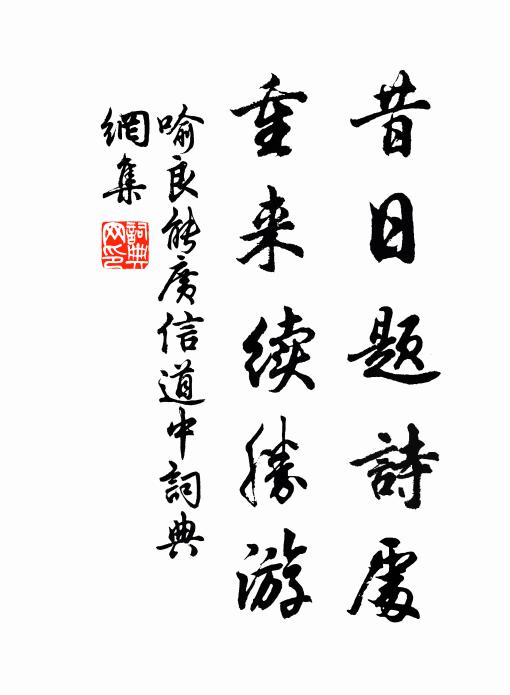 昔日题詩處
重来续勝游
喻良能廣信道中詞典
網集
詞典
网印